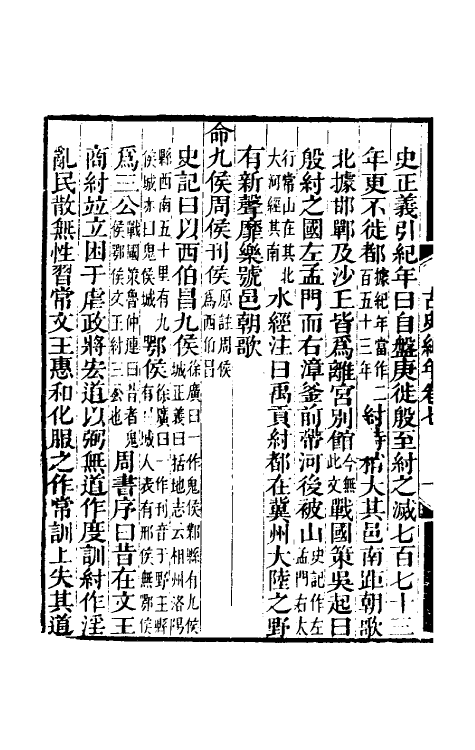 古史紀年卷七 一
史正義引紀年曰自盤庚徙殷至紂之滅七百七十三
年更不徙都據紀年當作二百五十三年紂時稍大其邑南距朝歌
北據邯鄲及沙丘皆爲離宮別館今無此文戰國策吳起曰
殷紂之國左孟門而右漳釜前帶河後被山史記作左孟門右太
行常山在其北大河經其南水經注曰禹貢紂都在冀州大陸之野
有新聲靡樂號邑朝歌
命九侯周侯刊侯原註周侯爲西伯昌
史記曰以西伯昌九侯徐廣曰一作鬼侯鄴縣有九侯城正義曰括地志云相州洛陽
縣西南五十里有九侯城亦曰鬼侯城鄂侯徐廣曰一作刊音于野王縣有刊城人表有邢侯無鄂侯
爲三公戰國策魯仲連曰昔者鬼侯鄂侯文王紂三公也周書序曰昔在文王
商紂竝立困于虐政將宏道以弼無道作度訓紂作淫
亂民散無性習常文王惠和化服之作常訓上失其道